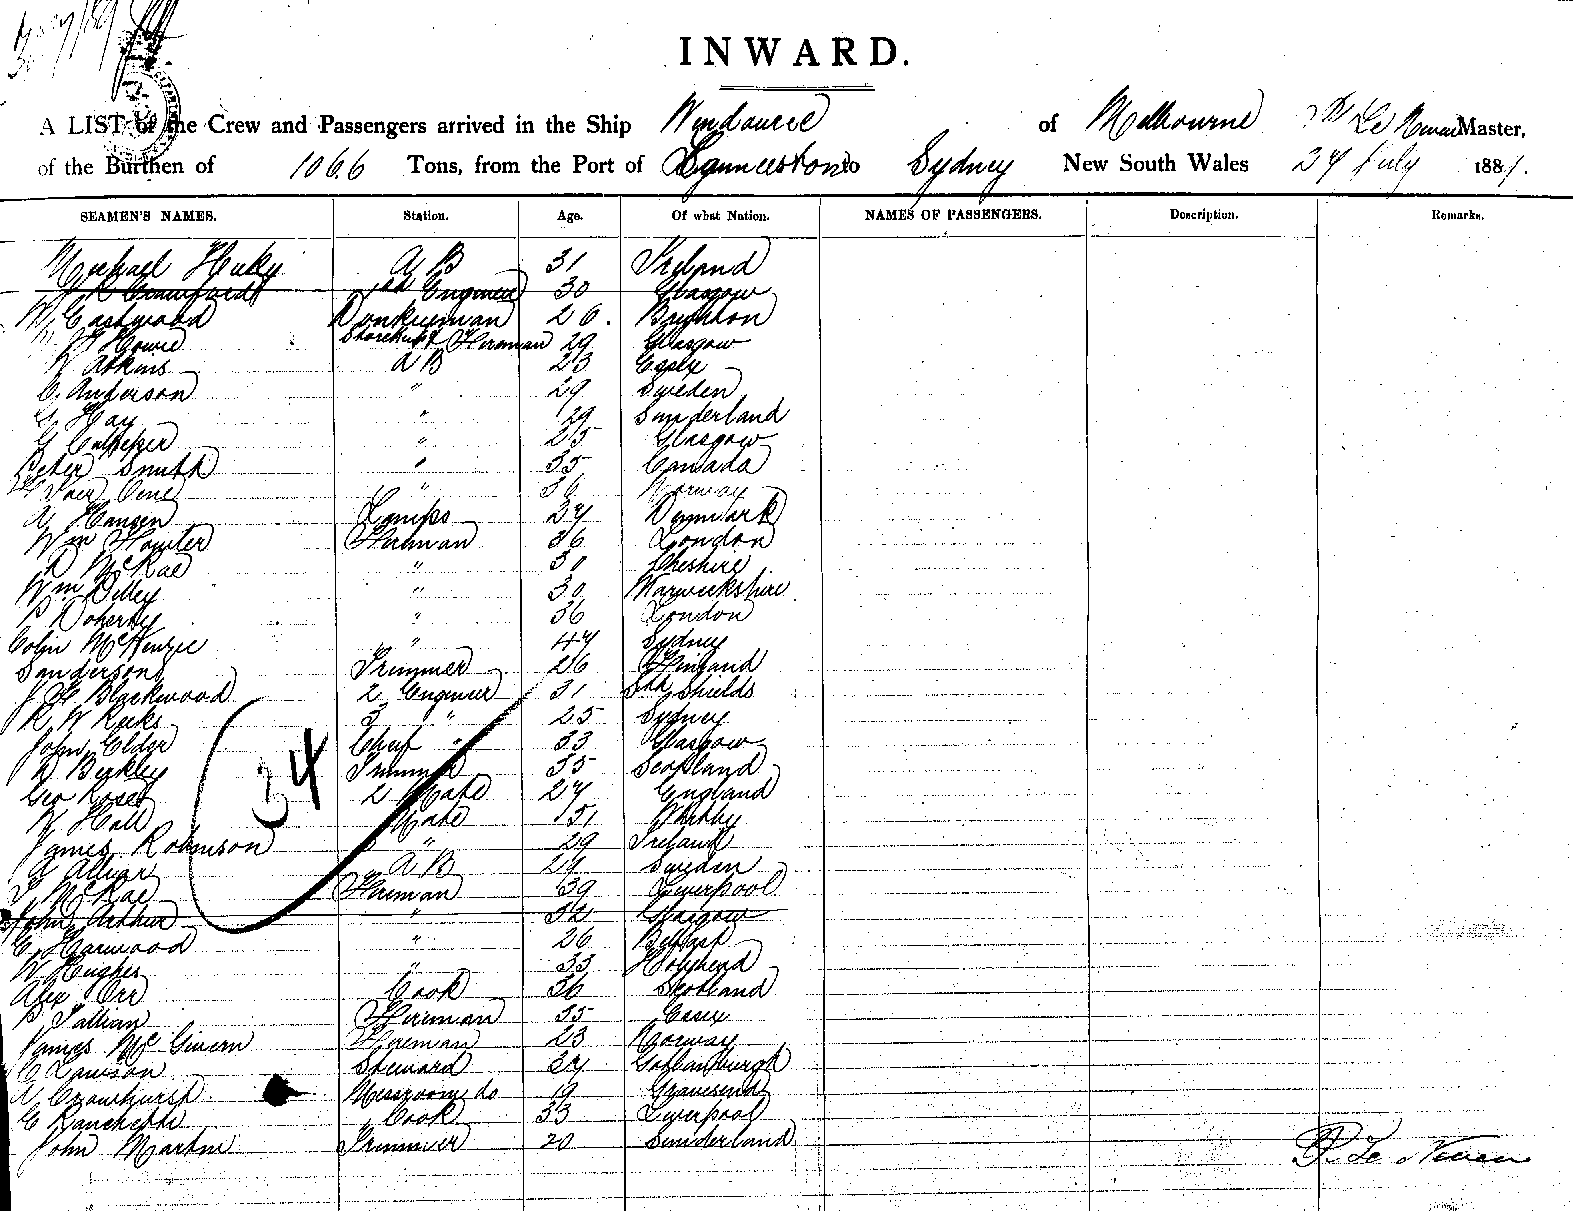 INWARD.
A LIST of the Crew and Passengers arrived in the Ship Windouree of Melbourne Le Neveu Master,
of the Burthen of 1066 Tons, from the Port of Launceston to Sydney New South Wales 27 July 1889.
SEAMEN'S NAMES. Station. Age. Of what Nation. NAMES OF PASSENGERS. Description. Remarks.
Michael A B 31 Ireland
Crawford Engineer 30 Glasgow
W Eastwood Donkeyman 26. Brighton
W Howie Storekeeper & Fireman 29 Glasgow
W Atkins A B 23 Essex
C. Anderson " 29 Sweden
G Hay " 29 Sunderland
G Culpeper " 25 Glasgow
Peter Smith " 35 Canada
" 36 Norway
A Hansen Lamps 27 Denmark
Wm Hunter Fireman 36 London
D McRae " 31 Cheshire
Wm Dilley " 30 Warwickshire
P Doherty " 36 London
Colin McKenzie " 47 Sydney
Sanderson Trimmer 26 Finland
J Blackwood 2 Engineer 31 Sth Shields
R W Reeks 3 " 25 Sydney
John Elder Chief " 33 Glasgow
D Berkley Trimmer 35 Scotland
Geo Roser 2 Mate 27 England
W Hall Mate 51 Whitby
James Robinson " 29 Ireland
A B 24 Sweden
McRae Fireman 39 Liverpool
John Arthur " 32 Glasgow
C Harwood " 26 Belfast
W Hughes " 33 Holyhead
Alex Orr Cook 36 Scotland
Fireman 35 Essex
James McGivern Fireman 23 Norway
C Lawson Steward 34 Gothenburgh
A Crowhurst Messroom do 19 Gravesend
C Cook 33 Liverpool
John Martin Trimmer 20 Sunderland
P. Le Neveu
34